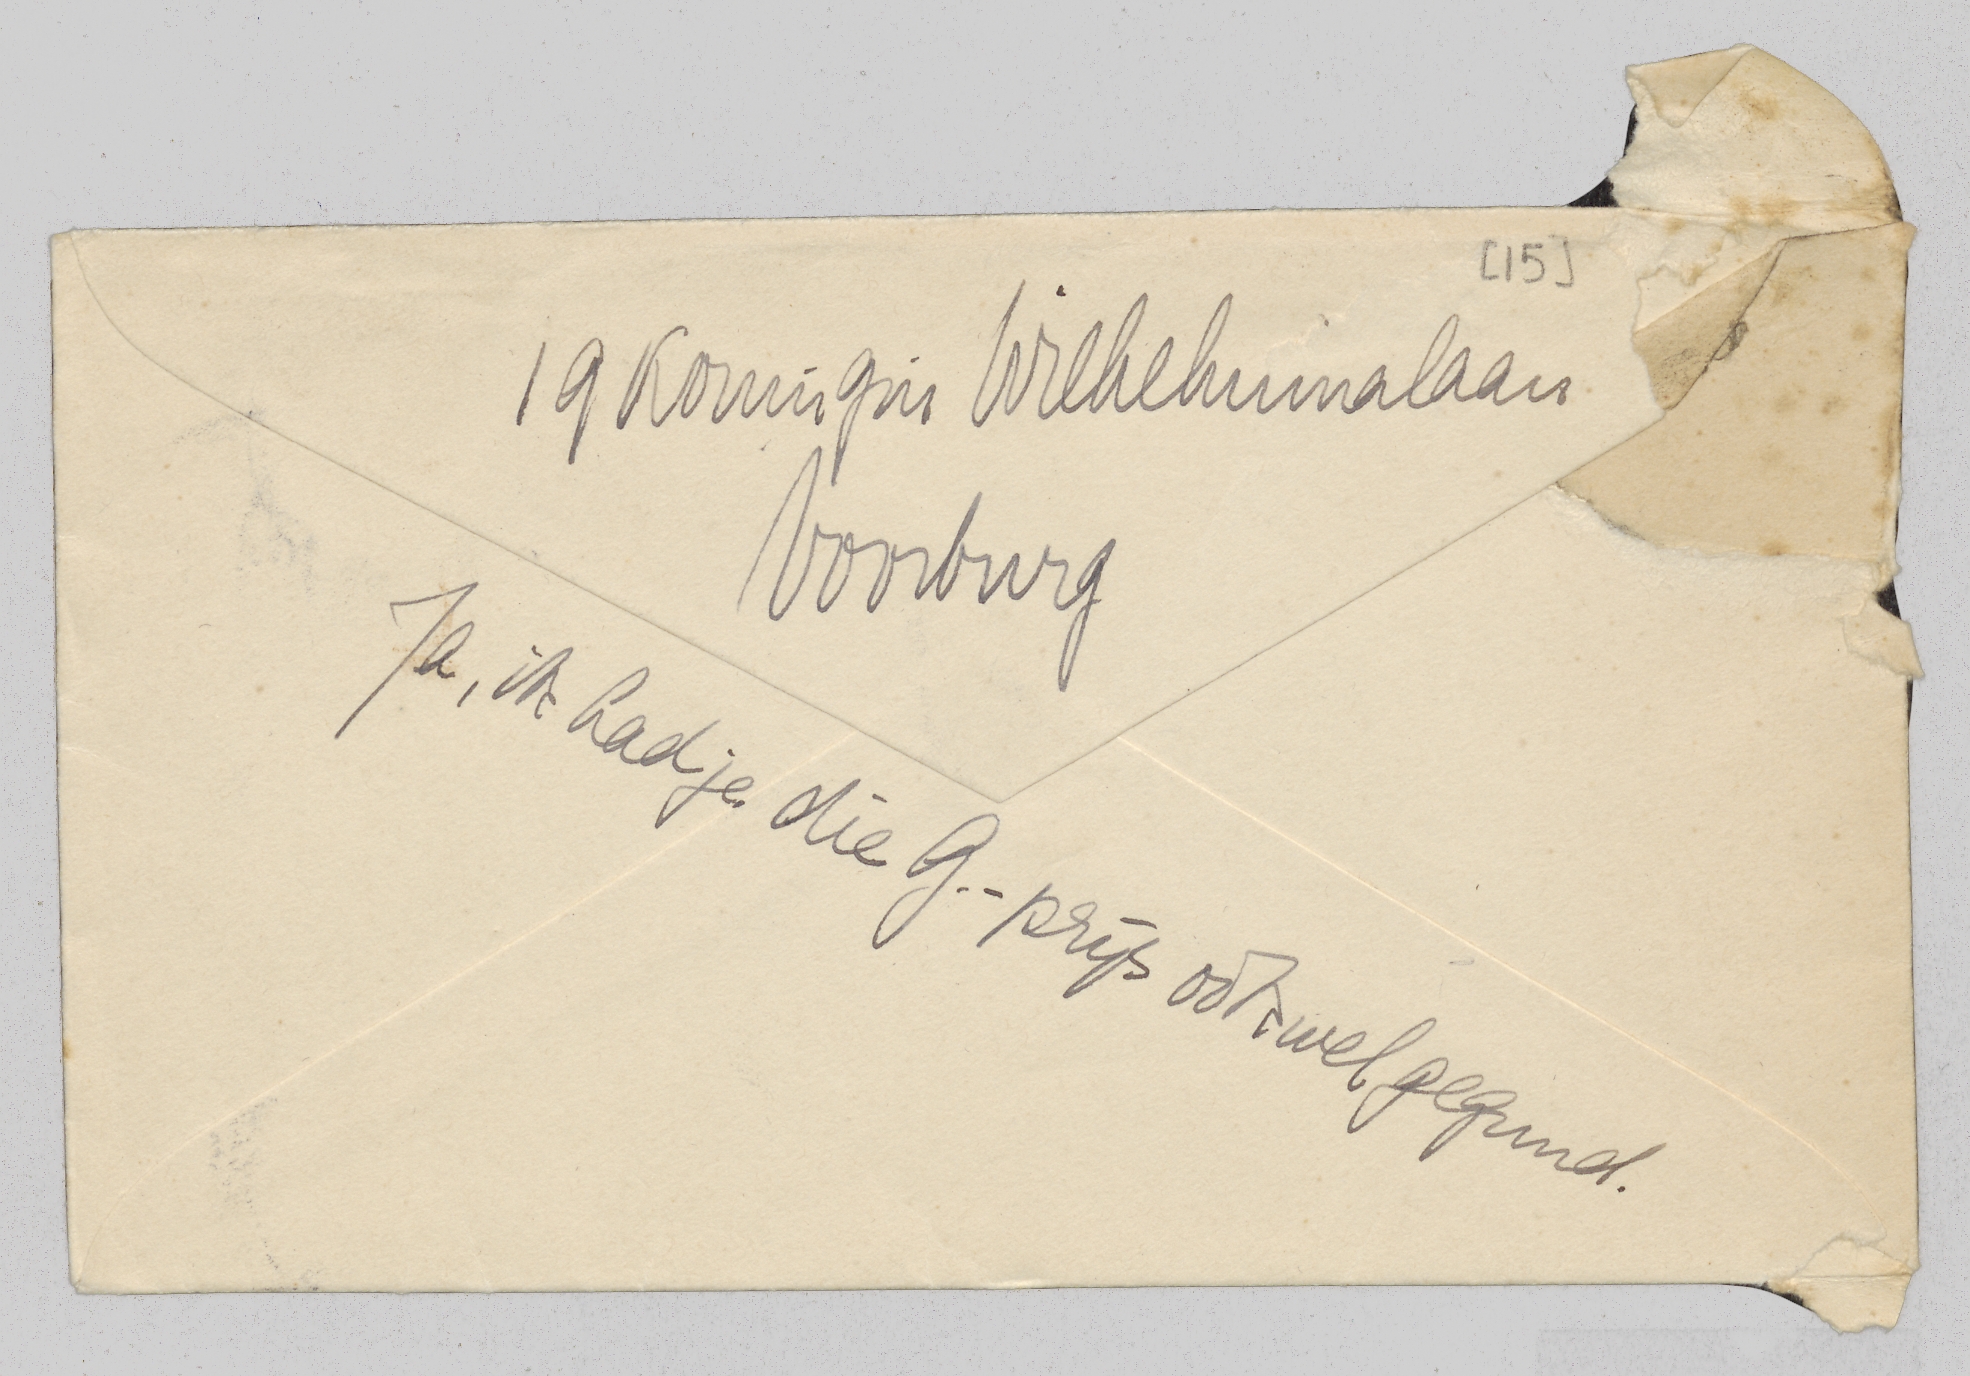 [15]
19 Koningin Wilhelminalaan
Voorburg
Ja, ik had je die G.-prijs ook wel gegund.